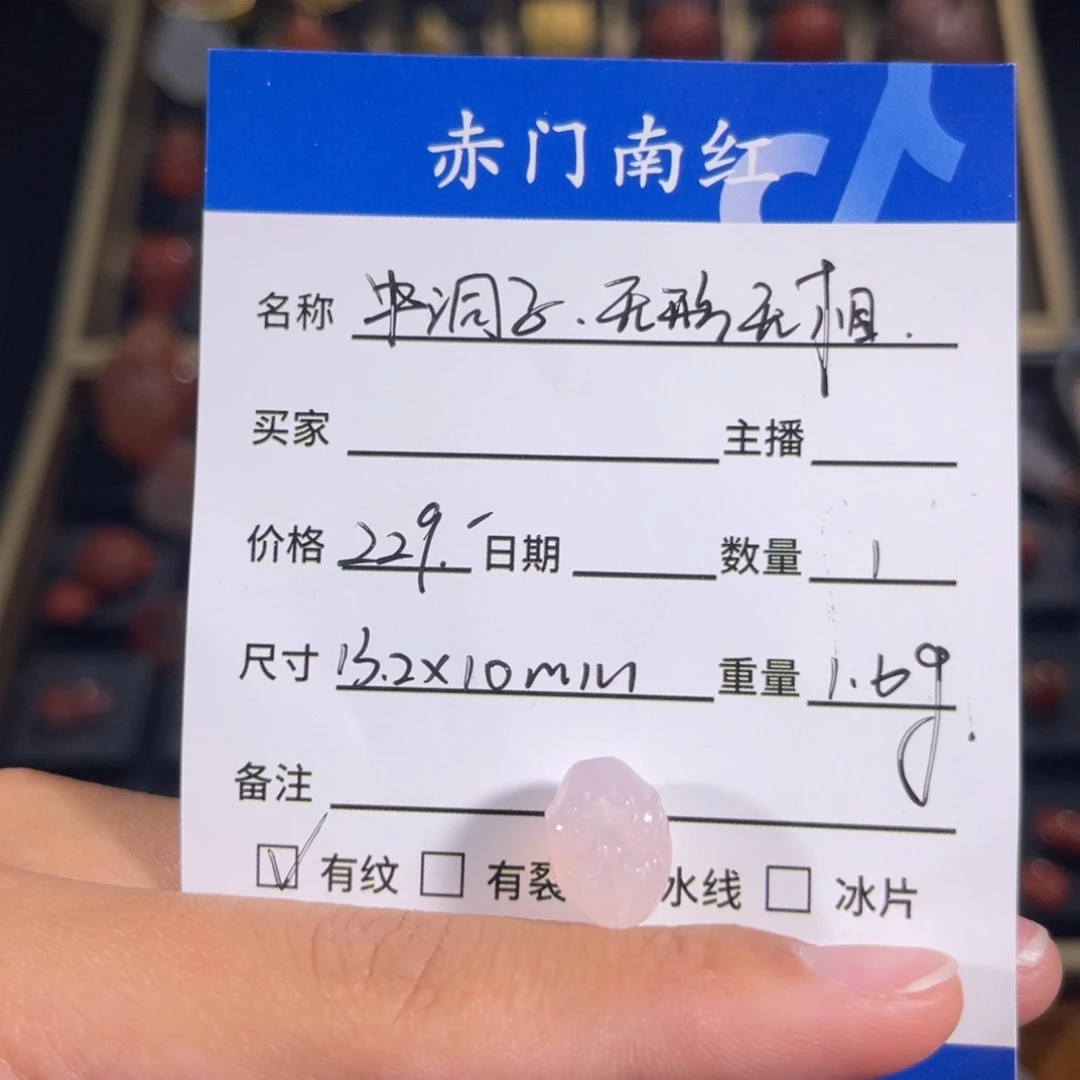 赤门南红
名称 半洞子.无形无相.
买家 主播
价格 229. 日期 数量 1
尺寸 13.2×10mm 重量 1.6g
备注
☑ 有纹 □ 有裂 水线 □ 冰片